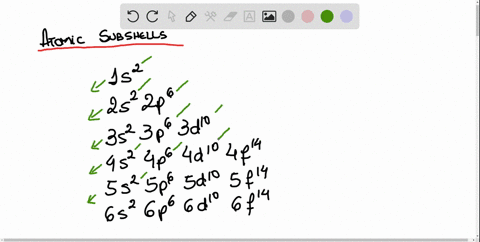 ATOMIC SUBSHELLS
1s²
2s² 2p⁶
3s² 3p⁶ 3d¹⁰
4s² 4p⁶ 4d¹⁰ 4f¹⁴
5s² 5p⁶ 5d¹⁰ 5f¹⁴
6s² 6p⁶ 6d¹⁰ 6f¹⁴